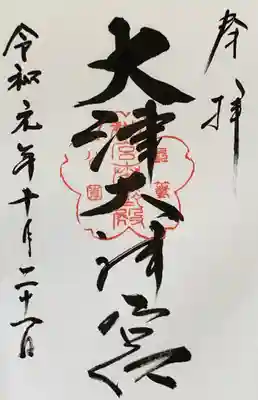 奉拝
大津大神宮
令和元年十月二十一日